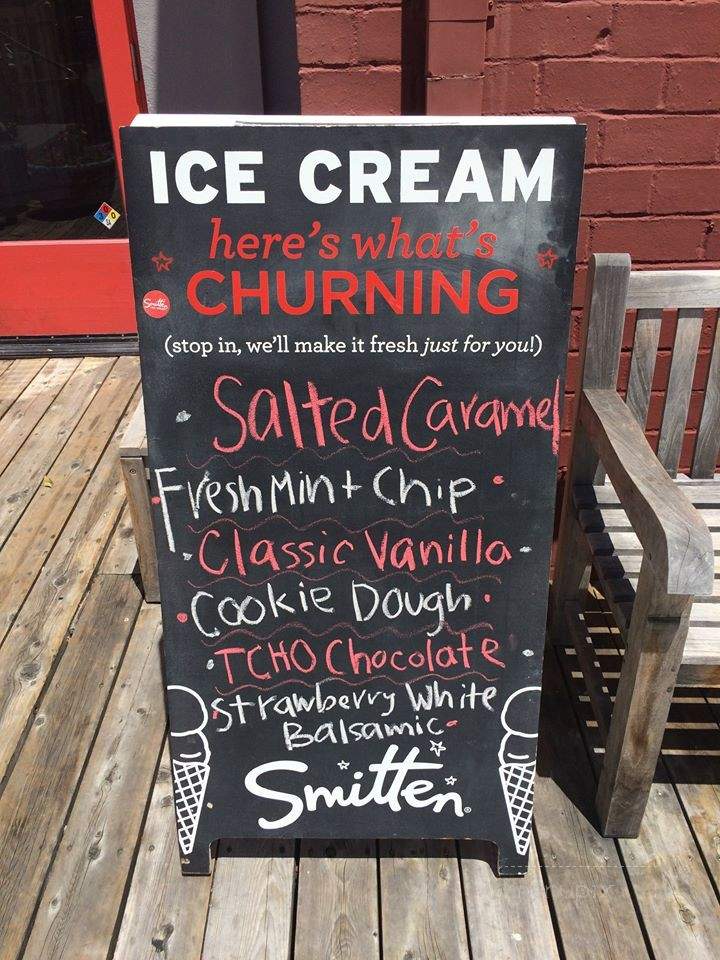 ICE CREAM
here's what's
CHURNING
(stop in, we'll make it fresh just for you!)
Salted Caramel
Fresh Mint Chip
Classic Vanilla
Cookie Dough
TCHO Chocolate
Strawberry White
Balsamic
Smitten
Smitten